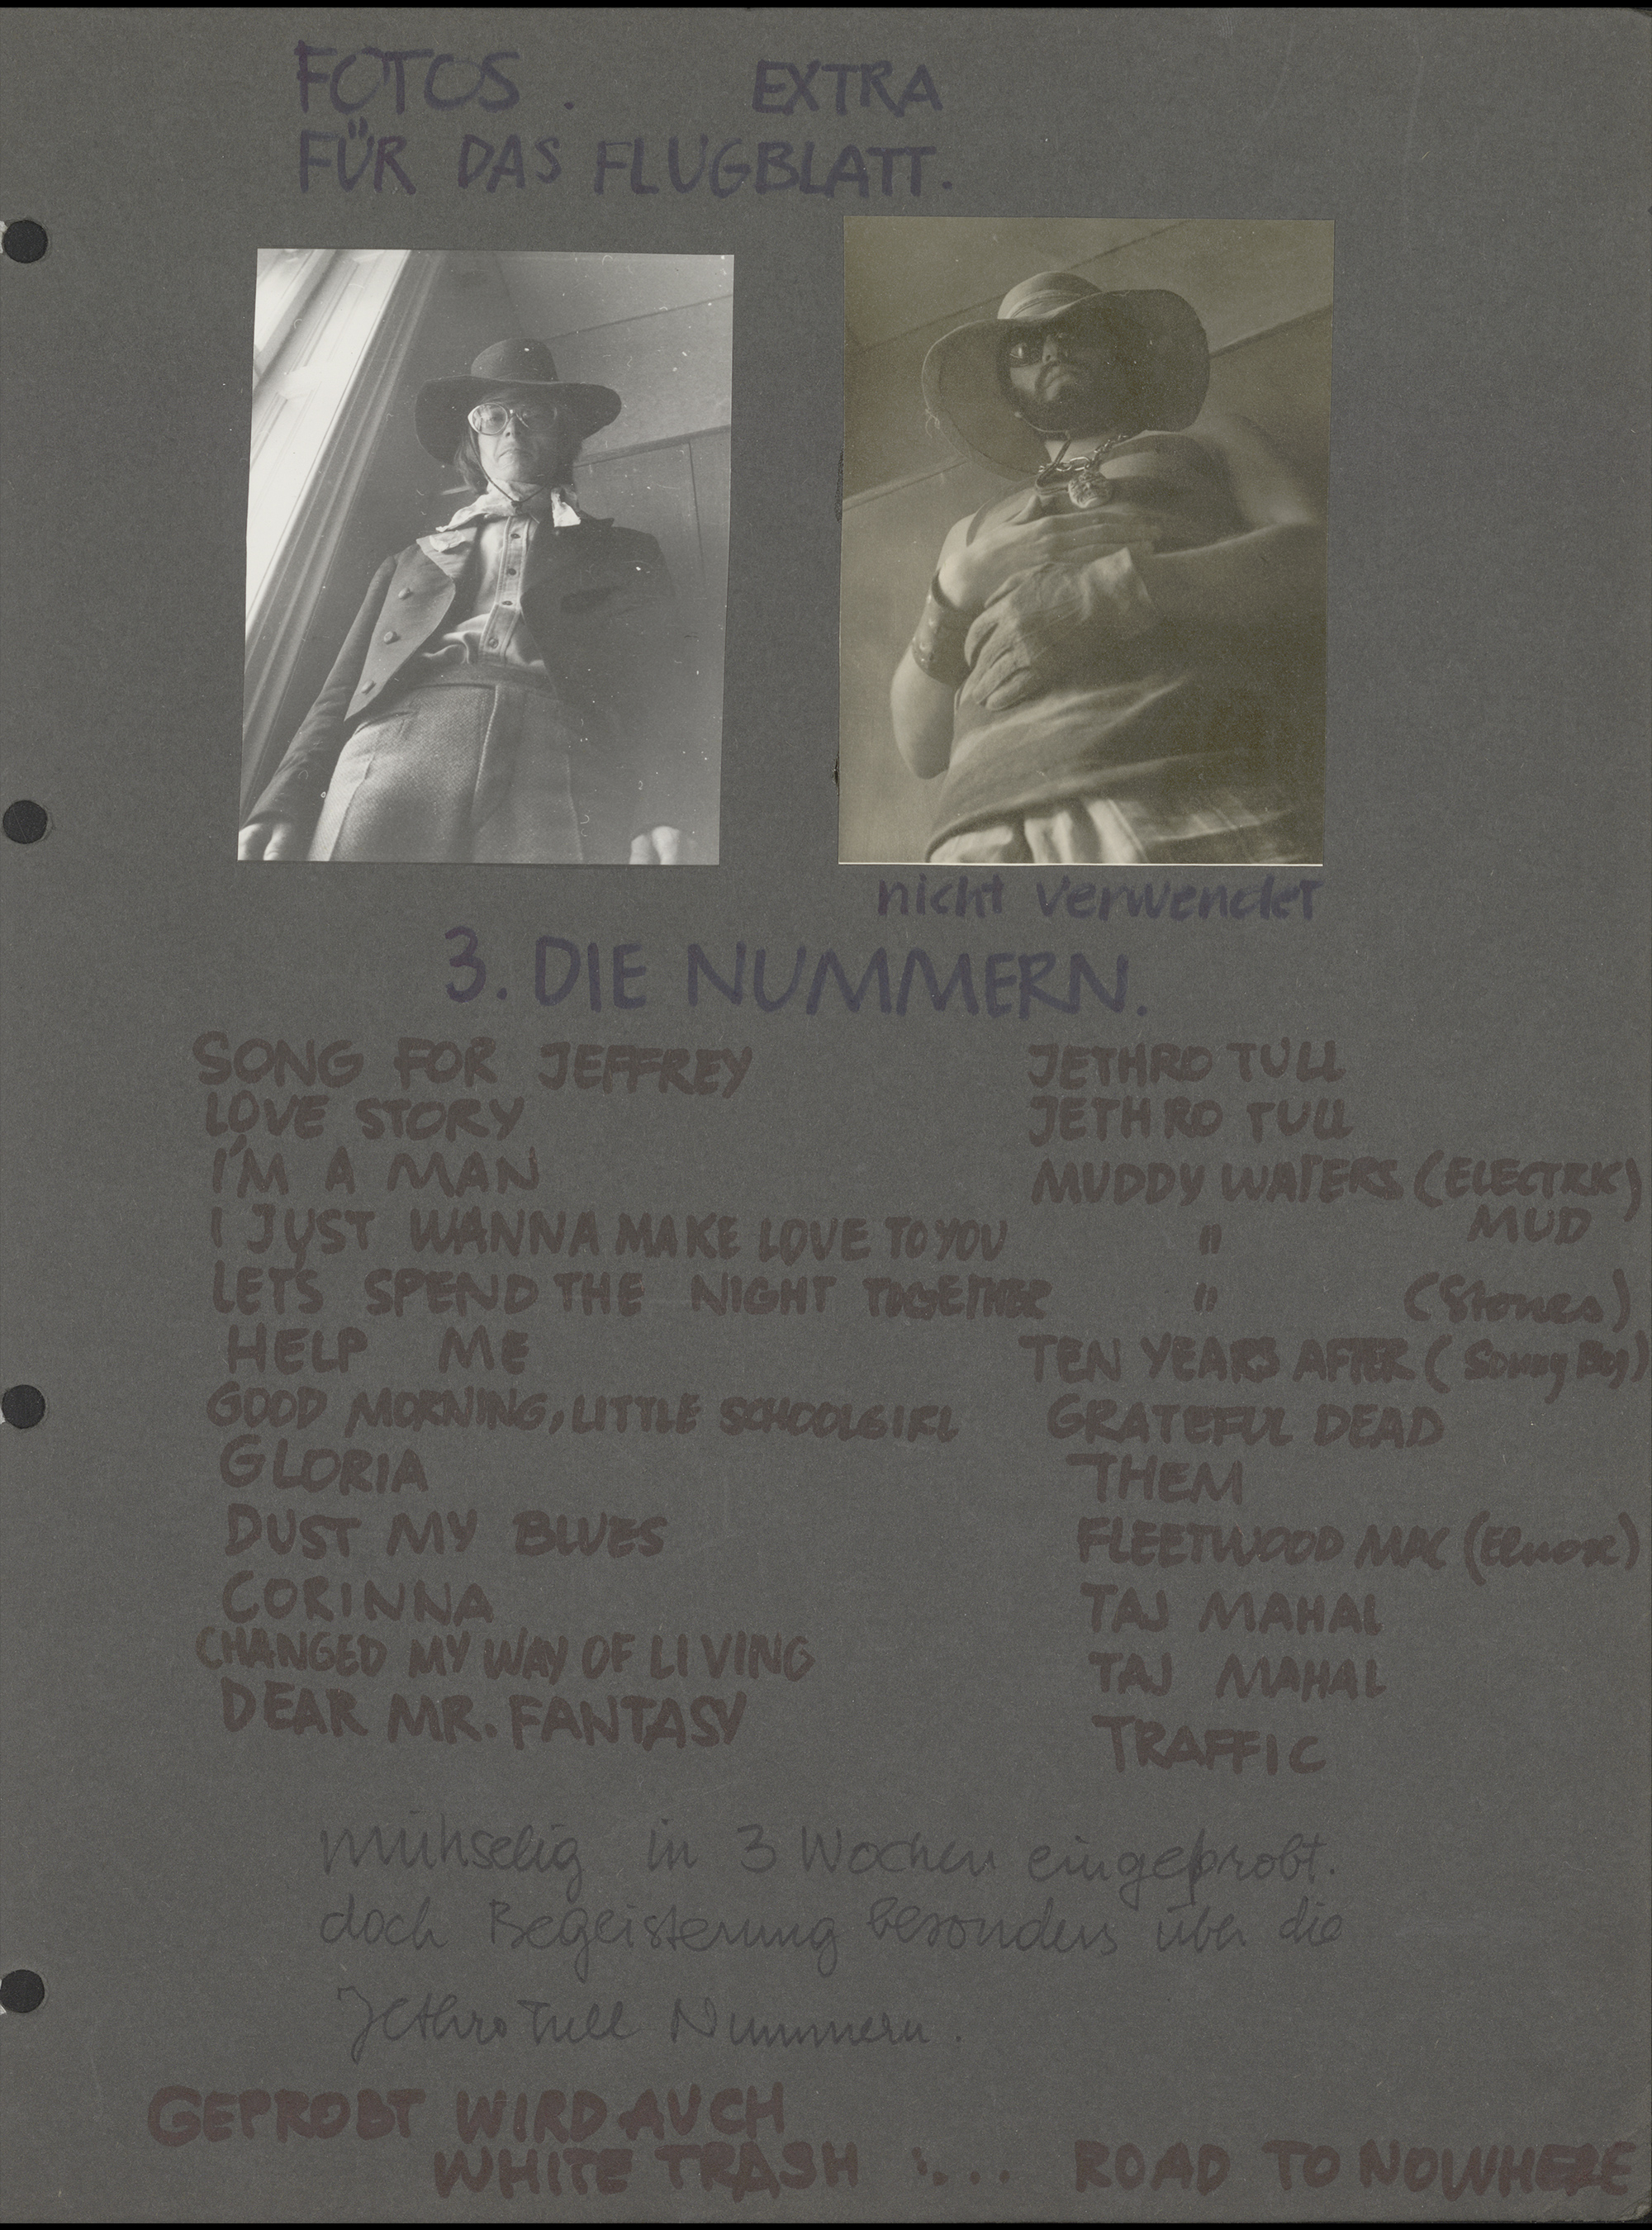 FOTOS. EXTRA
FÜR DAS FLUGBLATT.
nicht verwendet
3. DIE NUMMERN.
SONG FOR JEFFREY JETHRO TULL
LOVE STORY JETHRO TULL
I'M A MAN MUDDY WATERS (ELECTRIC)
MUD
I JUST WANNA MAKE LOVE TO YOU "
LET'S SPEND THE NIGHT TOGETHER " (Stones)
HELP ME TEN YEARS AFTER (Sonny Boy)
GOOD MORNING, LITTLE SCHOOLGIRL GRATEFUL DEAD
GLORIA THEM
DUST MY BLUES FLEETWOOD MAC (Elmore)
CORINNA TAJ MAHAL
CHANGED MY WAY OF LIVING TAJ MAHAL
DEAR MR. FANTASY TRAFFIC
mühselig in 3 Wochen eingeprobt.
doch Begeisterung besonders über die
Jethro Tull Nummern.
GEPROBT WIRD AUCH
WHITE TRASH :... ROAD TO NOWHERE